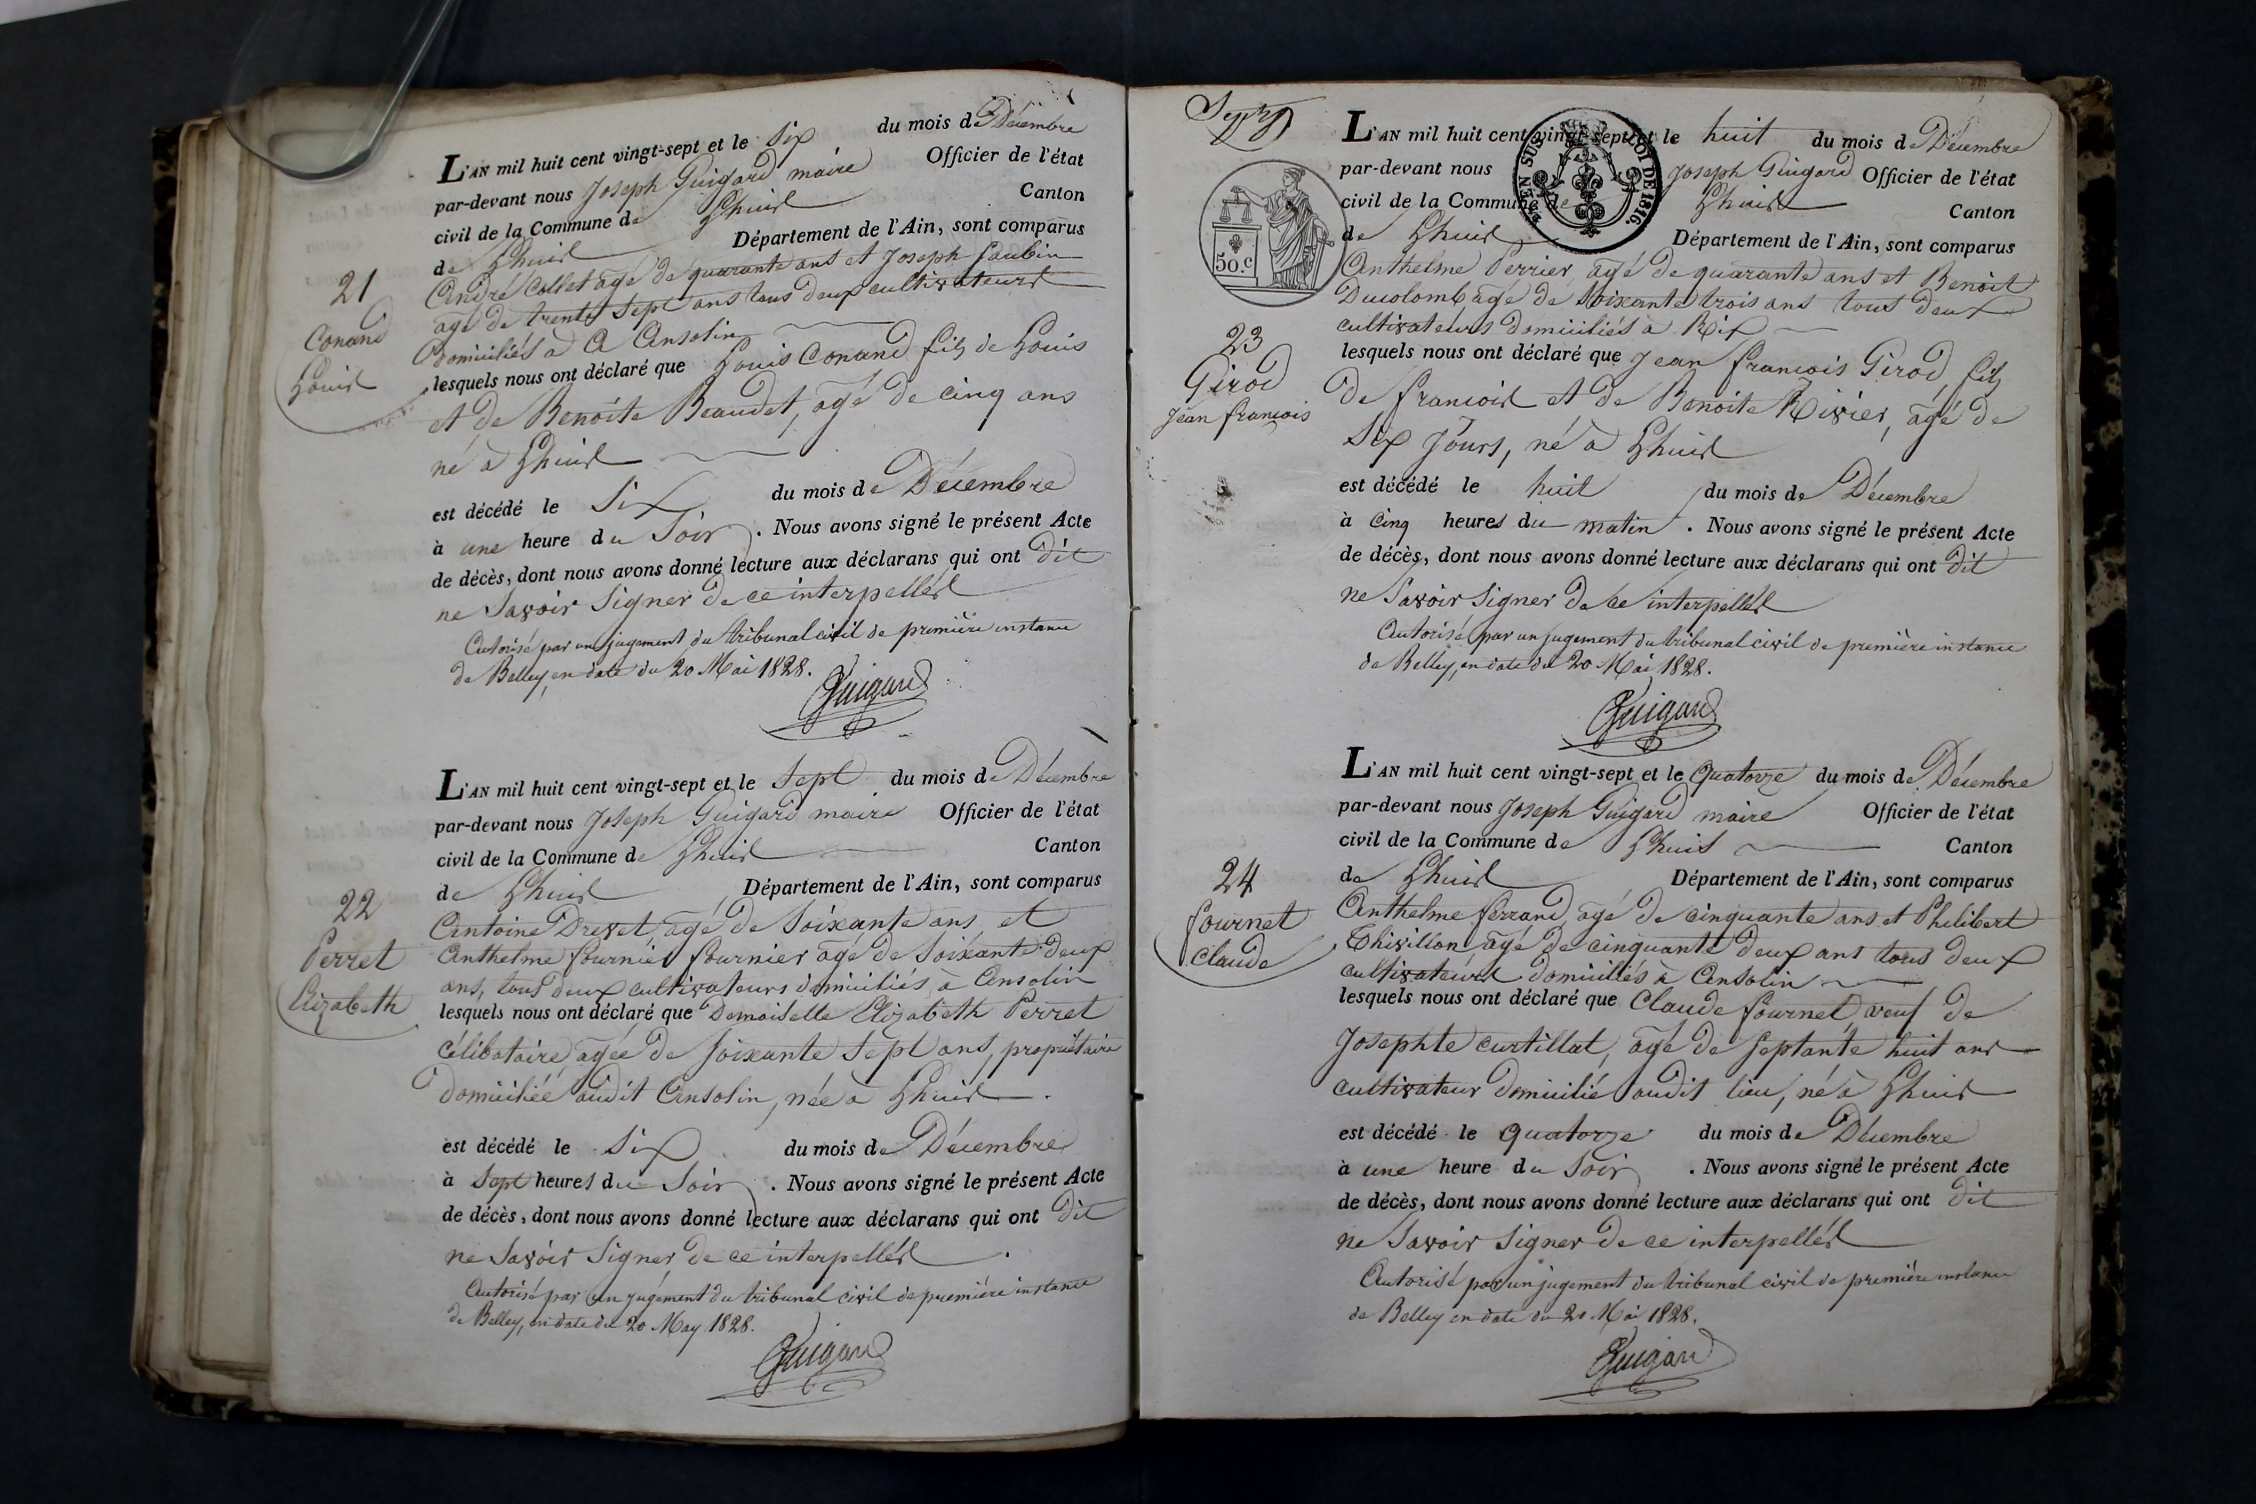 21
Conand
Louis
L'AN mil huit cent vingt-sept et le Six du mois de Décembre
par-devant nous Joseph Guigard maire Officier de l'état
civil de la Commune de Lhuis Canton
de Lhuis Département de l'Ain, sont comparus
André Collet agé de quarante ans et Joseph
agé de trente sept ans tous deux cultivateurs
domiciliés à Ansolin
lesquels nous ont déclaré que Louis Conand fils de Louis
et de Benoîte Beaudet, agé de cinq ans
né à Lhuis
est décédé le Six du mois de Décembre
à une heure du Soir. Nous avons signé le présent Acte
de décès, dont nous avons donné lecture aux déclarans qui ont dit
ne Savoir Signer de ce interpellés
Autorisé par un jugement du tribunal civil de première instance
de Belley, en date du 20 Mai 1828.
Guigard
22
Perret
Elizabeth
L'AN mil huit cent vingt-sept et le Sept du mois de Décembre
par-devant nous Joseph Guigard maire Officier de l'état
civil de la Commune de Lhuis Canton
de Lhuis Département de l'Ain, sont comparus
Antoine Drevet agé de Soixante ans et
Anthelme fournier fournier agé de Soixante deux
ans, tous deux cultivateurs domiciliés à Ansolin
lesquels nous ont déclaré que Demoiselle Elizabeth Perret
célibataire, agée de Soixante Sept ans, propriétaire
domiciliée audit Ansolin, née à Lhuis.
est décédé le Six du mois de Décembre
à Sept heures du Soir. Nous avons signé le présent Acte
de décès, dont nous avons donné lecture aux déclarans qui ont dit
ne Savoir Signer de ce interpellés.
Autorisé par un jugement du tribunal civil de première instance
de Belley, en date du 20 May 1828.
Guigard
50.c
EN SUS
LOI DE 1816.
23
Girod
Jean francois
L'AN mil huit cent vingt-sept et le huit du mois de Décembre
par-devant nous Joseph Guigard Officier de l'état
civil de la Commune de Lhuis Canton
de Lhuis Département de l'Ain, sont comparus
Anthelme Perrier, agé de quarante ans et Benoit
Ducolomb agé de Soixante trois ans tous deux
cultivateurs domiciliés à Rix
lesquels nous ont déclaré que Jean francois Girod, fils
de francois et de Benoite Rivier, agé de
Six Jours, né à Lhuis
est décédé le huit du mois de Décembre
à Cinq heures du matin. Nous avons signé le présent Acte
de décès, dont nous avons donné lecture aux déclarans qui ont dit
ne Savoir Signer de ce interpellés
Autorisé par un jugement du tribunal civil de première instance
de Belley, en date du 20 Mai 1828.
Guigard
24
fournet
Claude
L'AN mil huit cent vingt-sept et le Quatorze du mois de Décembre
par-devant nous Joseph Guigard maire Officier de l'état
civil de la Commune de Lhuis Canton
de Lhuis Département de l'Ain, sont comparus
Anthelme ferrand, agé de cinquante ans et Philibert
Thivillon agé de cinquante deux ans tous deux
cultivateurs domiciliés à Ansolin
lesquels nous ont déclaré que Claude fournet veuf de
Josephte Curtillat, agé de Septante huit ans
cultivateur domicilié audit lieu, né à Lhuis
est décédé le quatorze du mois de Décembre
à une heure du Soir. Nous avons signé le présent Acte
de décès, dont nous avons donné lecture aux déclarans qui ont dit
ne Savoir Signer de ce interpellés
Autorisé par un jugement du tribunal civil de première instance
de Belley en date du 20 Mai 1828.
Guigard